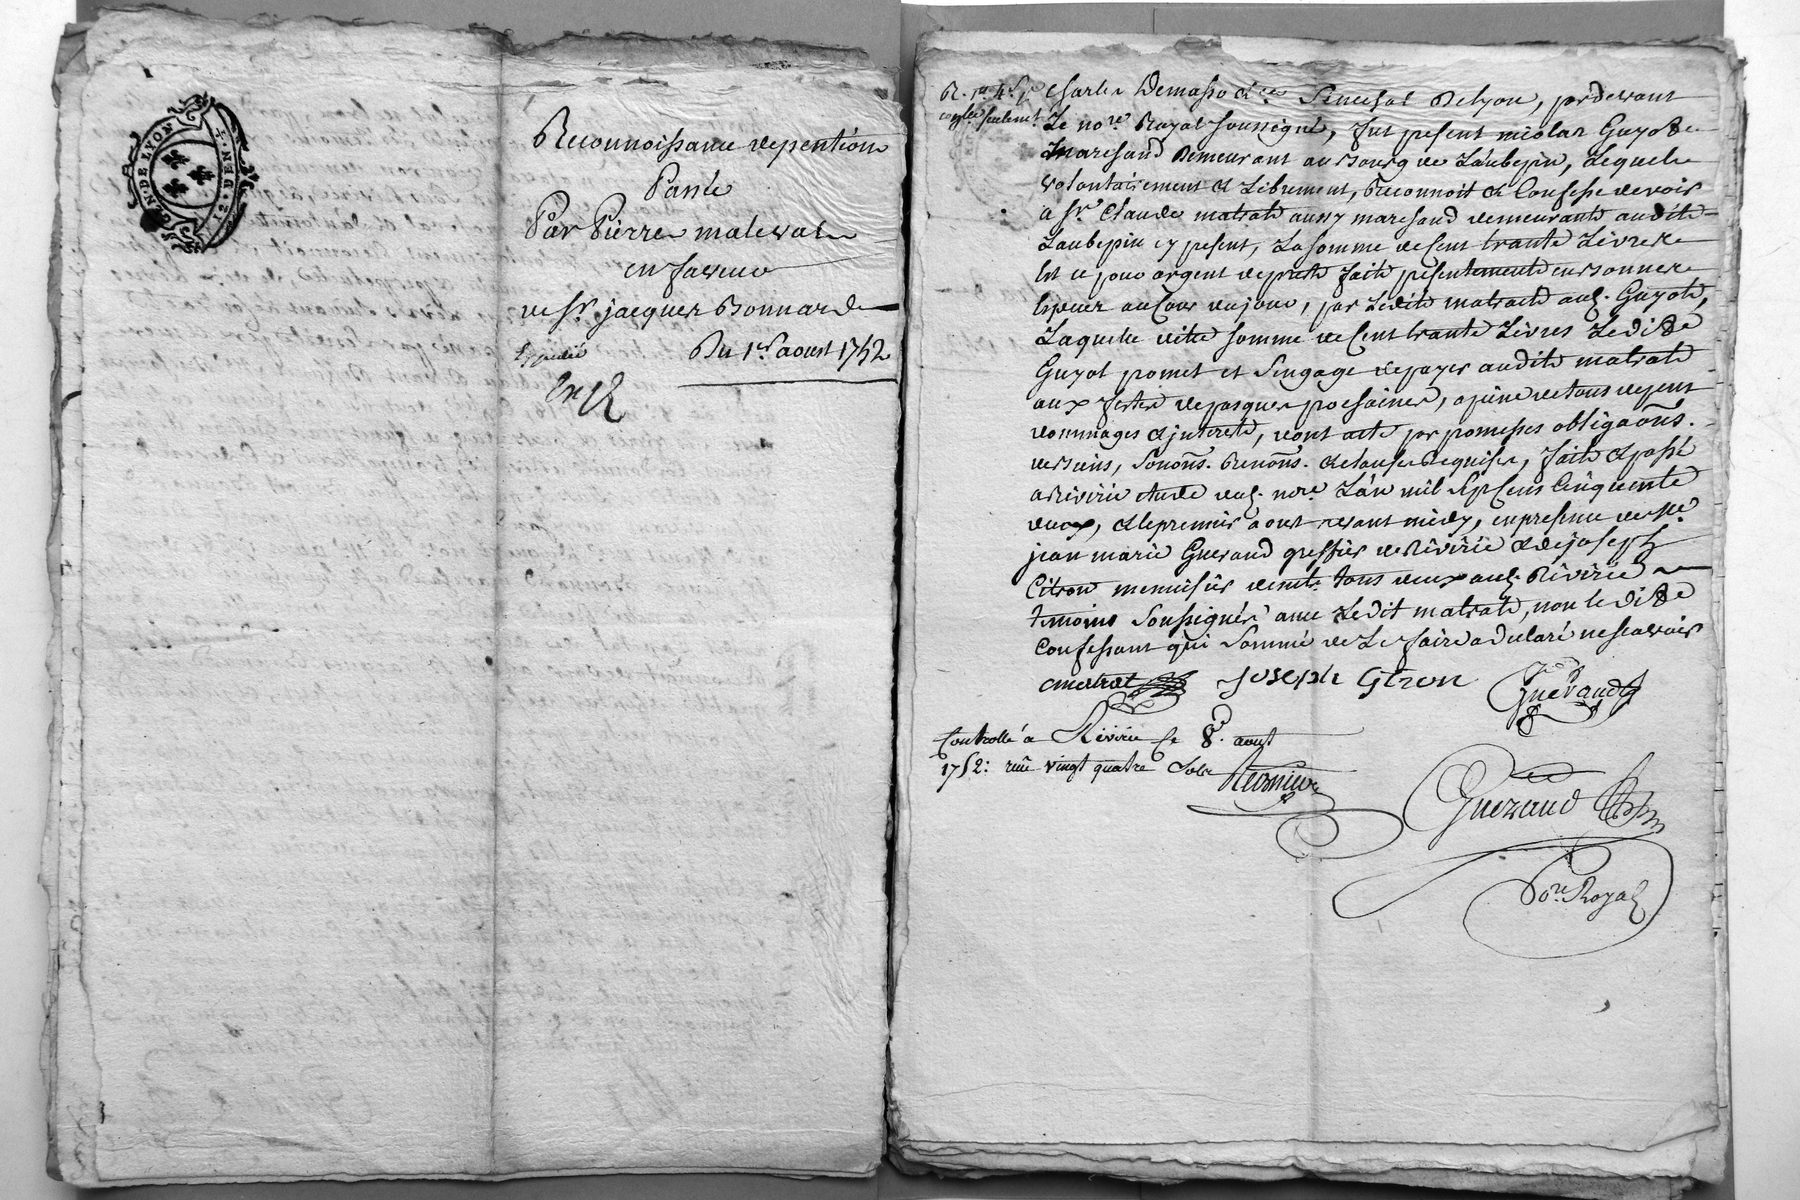 GEN. DE LYON
12. DEN.
Reconnoissance de pention
Passée
Par Pierre maleval
en faveur
de Sr. jacques Bonnard
Expedié Du 1er. aoust 1752
Charles Demasso &ce. Senechal De Lyon, pardevant
Le nore. Royal soussigné, fut present nicolas Guyot
Marchand Demeurant au Bourg de Laubepin, Lequel
volontairement & Librement, Reconnoit & Confesse devoir
a Sr. Claude matrat aussy marchand demeurant audit
Laubepin cy present, La somme de Cent trante Livres
argent de prest fait presentement en Bonnere
Especes au Cour du jour, par Ledit matrat aud. Guyot,
Laquelle ditte somme de Cent trante Livres Ledit
Guyot promet et S'engage de payer audit matrat
aux festes de pasques prochaines, a peine de tous depens
dommages & interets, dont acte par promesses obligaons.
de Biens, renons. & clauses Requises, fait & passé
a Rivirie etude dud. nore. L'an mil Sept Cens Cinquante
deux, & le premier aoust avant midy, en presence de Me.
jean marie Guerand greffier de Rivirie & de joseph
Citron menuisier demt. tous deux aud. Rivirie
temoins Soussignés avec Ledit matrat, non le dit
Confessant qui Sommé de Le faire a declaré ne scavoir
matrat Joseph Gtron Gueraud
Controllé a Rivirie Le 8. aout
1752: reçu vingt quatre Sols
Gueraud
Nore. Royal